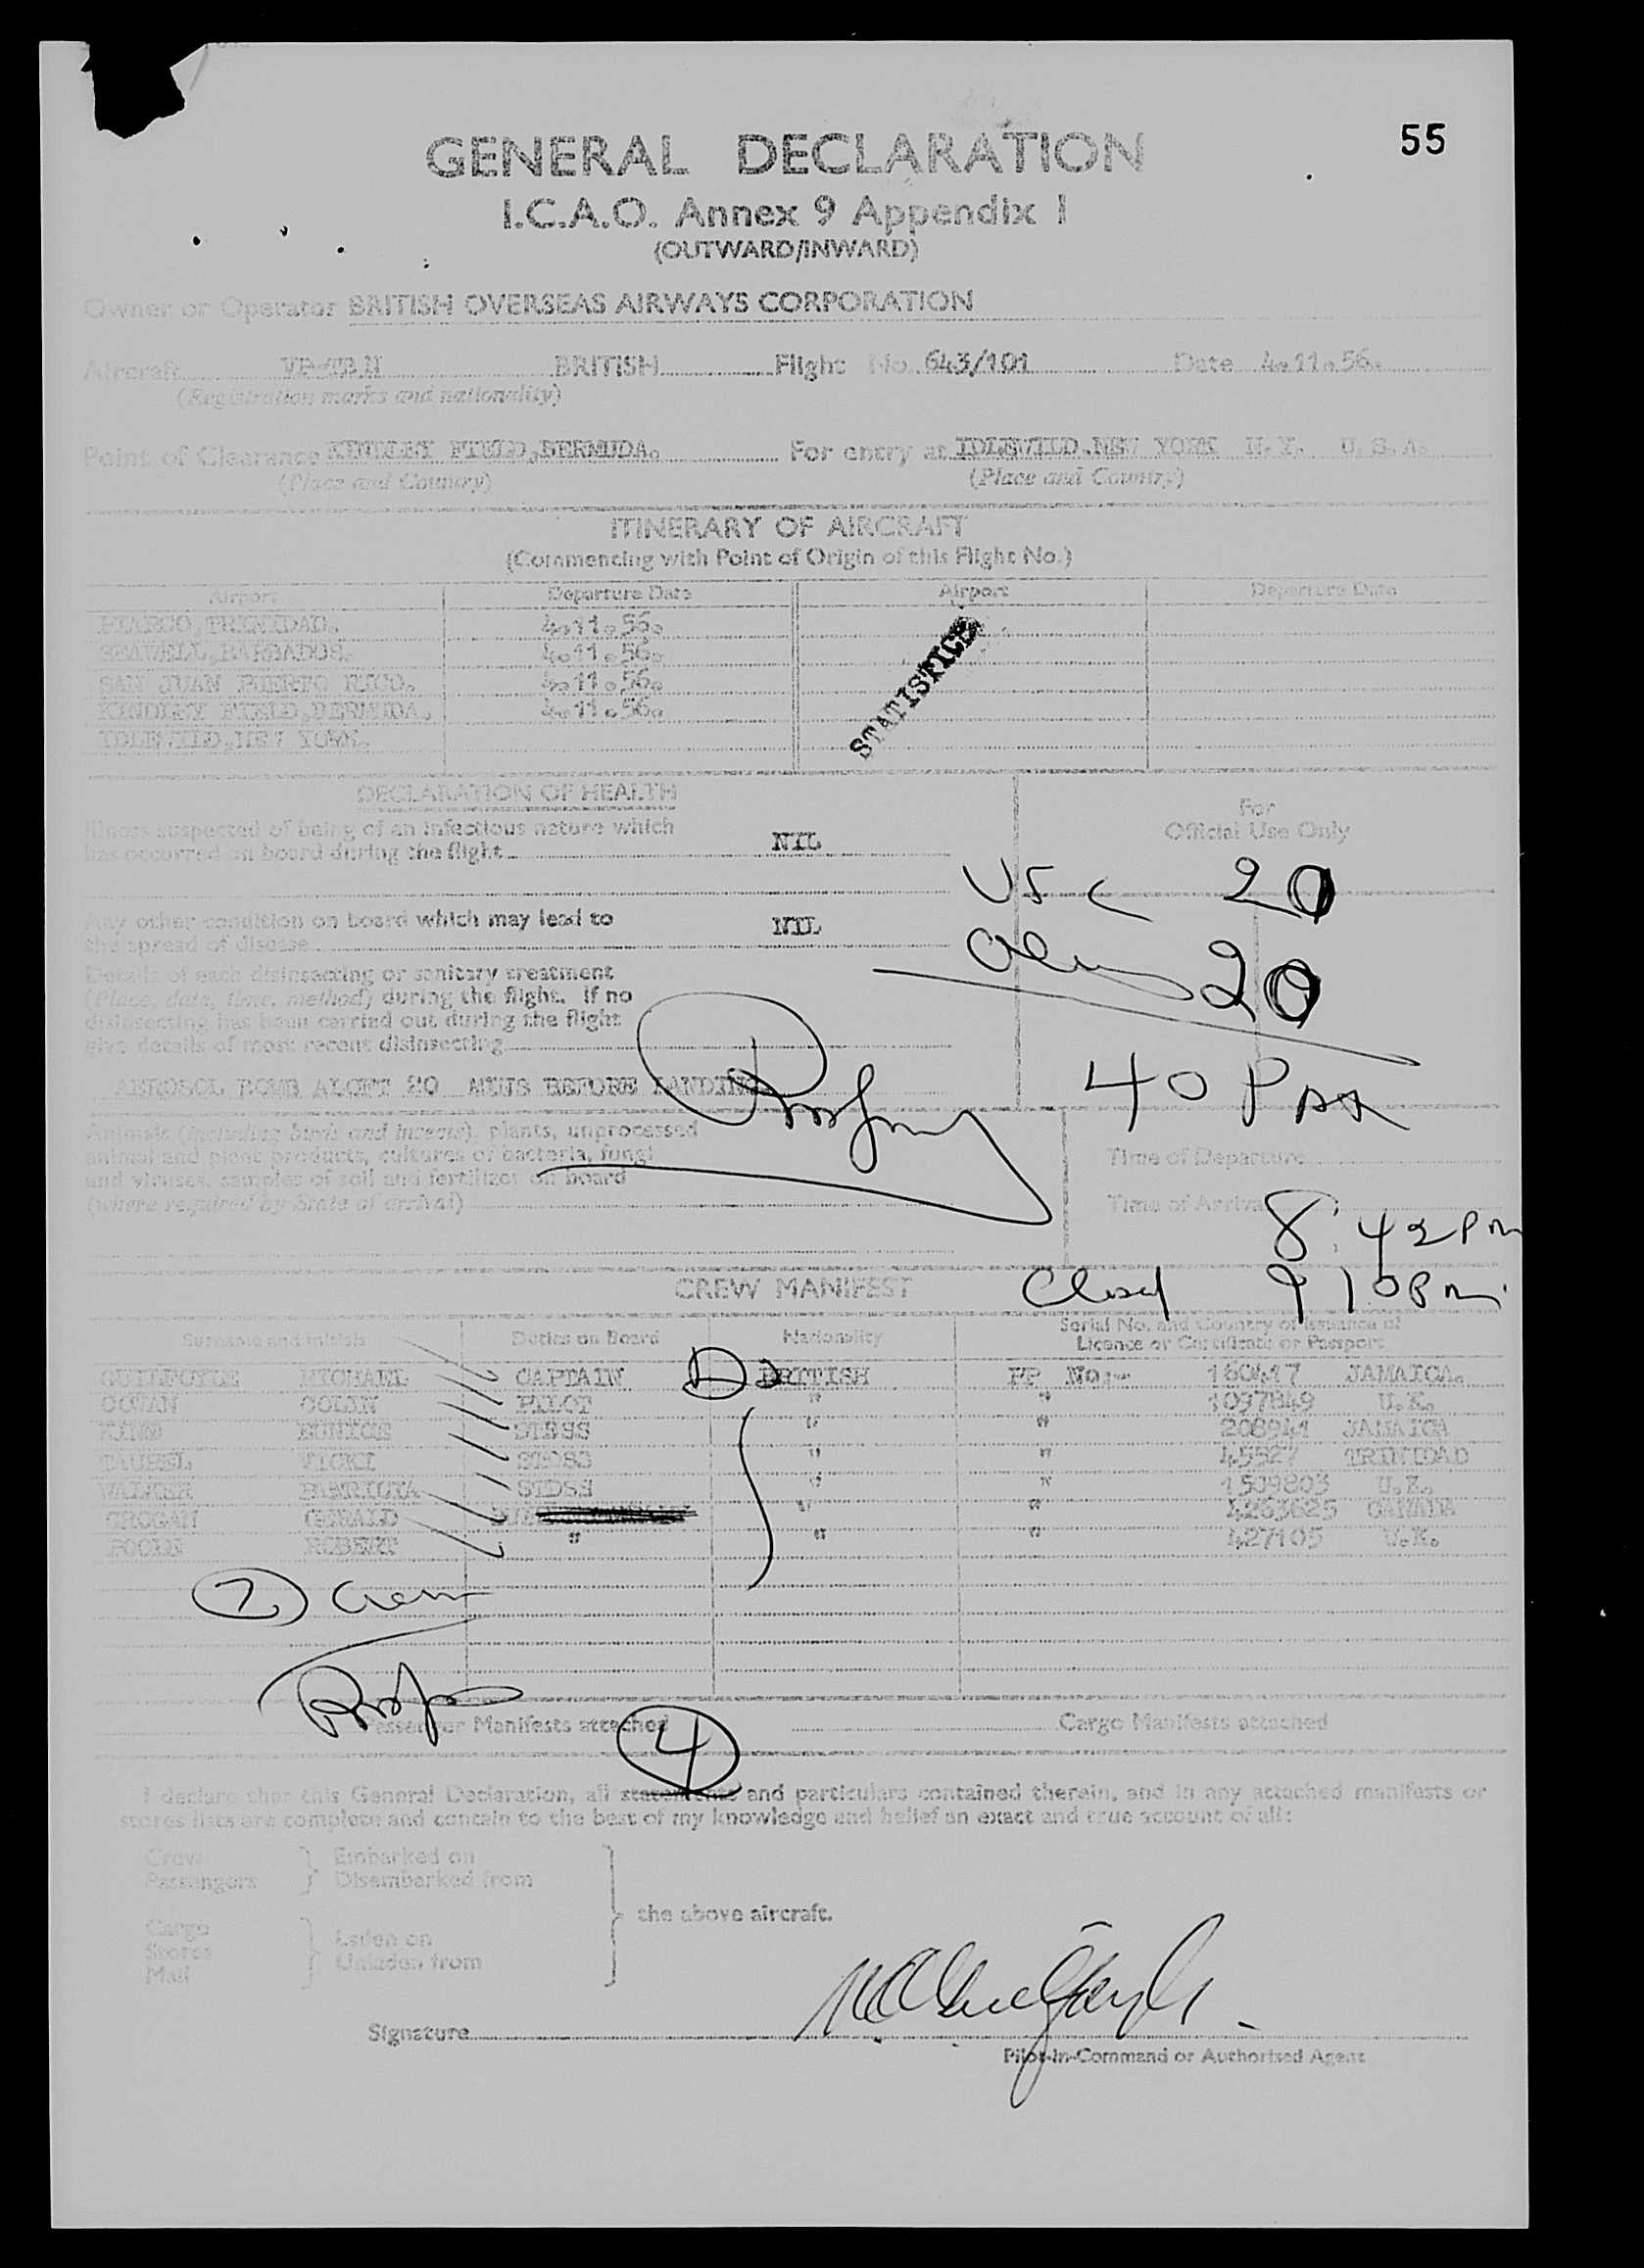 55
GENERAL DECLARATION
I.C.A.O. Annex 9 Appendix I
(OUTWARD/INWARD)
Owner or Operator BRITISH OVERSEAS AIRWAYS CORPORATION
Aircraft BRITISH Flight No. 643/101 Date 4.11.56.
(Registration marks and nationality)
Point of Clearance KINDLEY FIELD,BERMUDA. For entry at IDLEWILD.NEW YORK N.Y. U.S.A.
(Place and Country) (Place and Country)
ITINERARY OF AIRCRAFT
(Commencing with Point of Origin of this Flight No.)
Airport Departure Date Airport Departure Date
PIARCO,TRINIDAD. 4.11.56.
SEAWELL,BARBADOS. 4.11.56.
SAN JUAN PUERTO RICO. 4.11.56.
KINDLEY FIELD,BERMUDA. 4.11.56.
IDLEWILD,NEW YORK.
STATISTICS
DECLARATION OF HEALTH
For
Official Use Only
Illness suspected of being of an infectious nature which
has occurred on board during the flight NIL
USC 20
Any other condition on board which may lead to
the spread of disease NIL
20
Details of each disinsecting or sanitary treatment
(Place, date, time, method) during the flight. If no
disinsecting has been carried out during the flight
give details of most recent disinsecting
AEROSOL BOMB ALOFT 20 MINS BEFORE LANDING
40 PAX
Animals (including birds and insects), plants, unprocessed
animal and plant products, cultures of bacteria, fungi
and viruses, samples of soil and fertilizer on board
(where required by State of arrival)
Time of Departure
Time of Arrival 8:42 PM
Closed 9 10 PM
CREW MANIFEST
Surname and initials Duties on Board Nationality Serial No. and Country of Issuance of
Licence or Certificate or Passport
GUILFOYLE MICHAEL CAPTAIN BRITISH PP No:- 160417 JAMAICA.
COWAN COLIN PILOT " " 1097849 U.K.
KING EUNICE STDSS " " 208941 JAMAICA
TAUREL VICKI STDSS " " 45527 TRINIDAD
WALKER PATRICIA STDSS " " 1509803 U.K.
GROGAN GERALD " " 4263625 CANADA
ROBERT " " " 427105 U.K.
7 Crew
Passenger Manifests attached 4 Cargo Manifests attached
I declare that this General Declaration, all statements and particulars contained therein, and in any attached manifests or
stores lists are complete and contain to the best of my knowledge and belief an exact and true account of all:
Crew } Embarked on
Passengers } Disembarked from
the above aircraft.
Cargo
Stores } Laden on
Mail } Unladen from
Signature
Pilot-in-Command or Authorised Agent